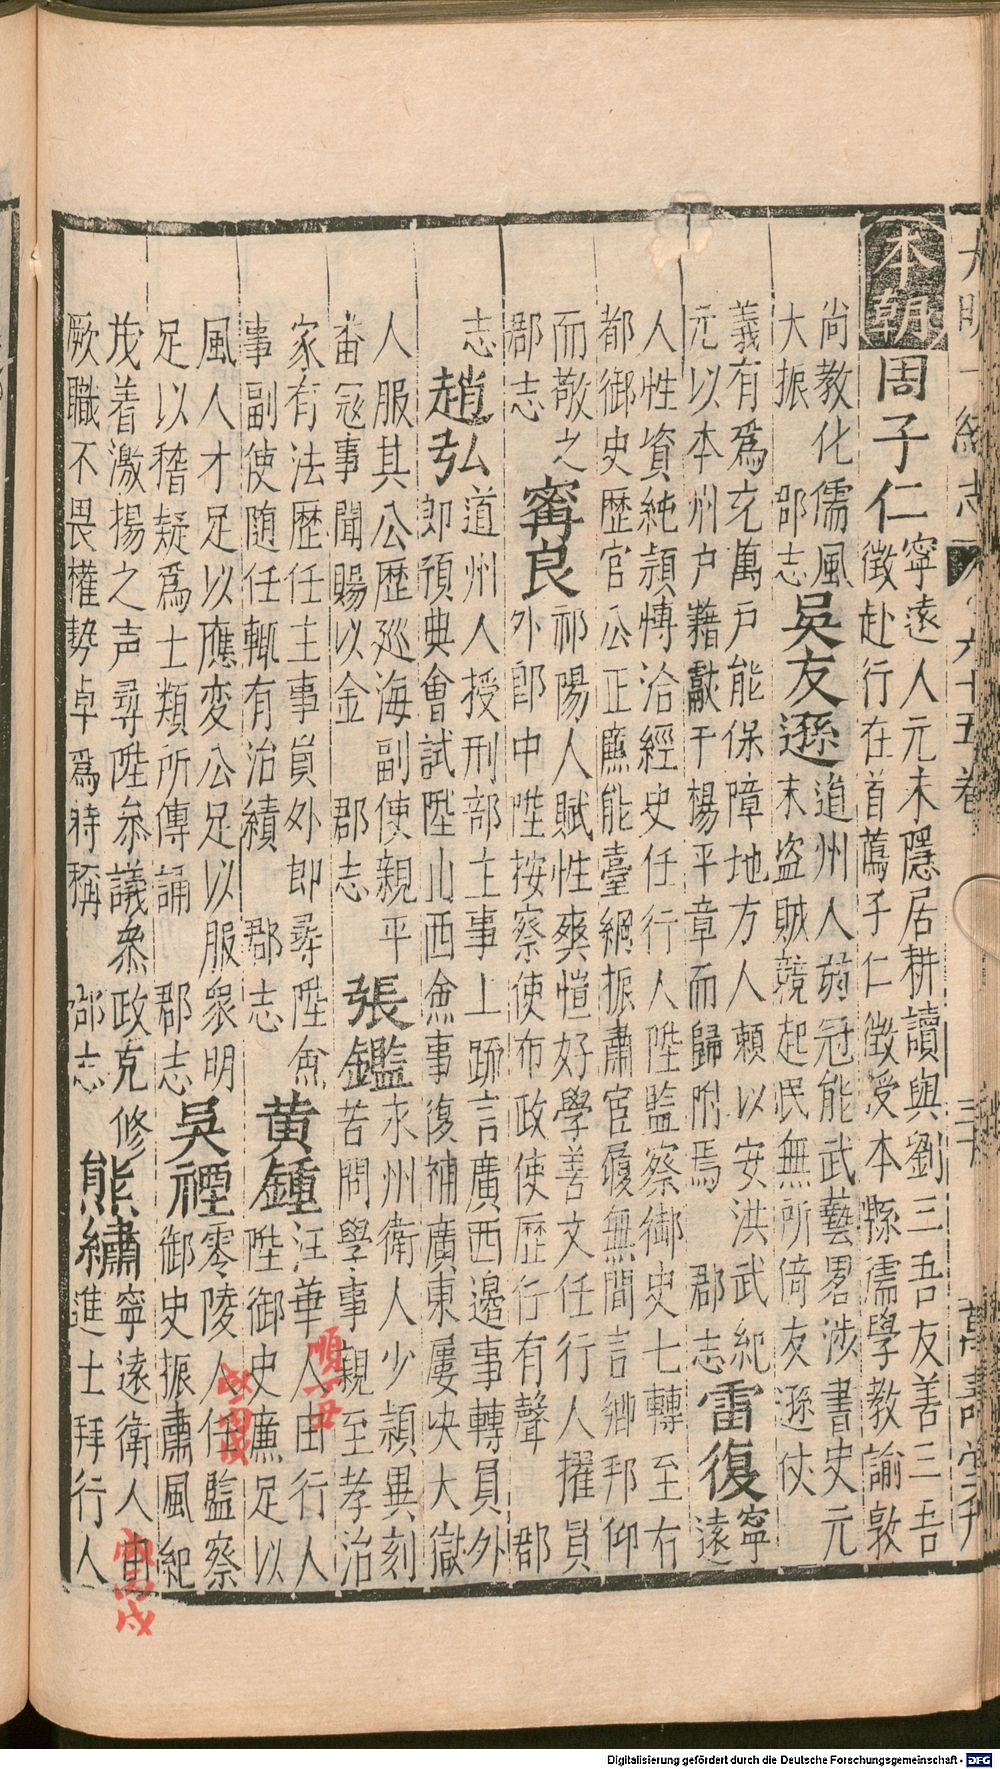 大明一統志 六十五卷 三十 萬壽堂刊
本朝 周子仁 寧遠人元末隱居耕讀與劉三吾友善三吾
徵赴行在首薦子仁徵受本縣儒學教諭敦
尚教化儒風 吳友遜 道州人弱冠能武藝畧涉書史元
大振 郡志 末盗賊競起民無所倚友遜仗
義有爲充萬戶能保障地方人頼以安洪武紀 雷復 寧
元以本州户藉獻于楊平章而歸附焉 郡志 遠
人性資純頴愽洽經史任行人陞監察御史七轉至右
都御史歷官公正廉能臺綱振肅官履無間言郷邦仰
而敬之 甯良 祁陽人賦性爽愷好學善文任行人擢員
郡志 外郎中陞按察使布政使歷行有聲 郡
志 趙弘 道州人授刑部主事上䟽言廣西邊事轉員外
即預典會試陞山西僉事復補廣東屢央大獄
人服其公歷廵海副使親平 張鑑 永州衛人少頴異刻
畨冦事聞賜以金 郡志 苦問學事親至孝治
家有法歷任主事員外即尋陞僉 黄鍾 汪華人由行人
事副使随任輙有治績 郡志 陞御史廉足以
風人才足以應変公足以服衆明 吳禋 零陵人任監察
足以稽疑爲士類所傳誦 郡志 御史振肅風紀
茂着激揚之声尋陞叅議叅政克修 熊繡 寧遠衛人由
厥職不畏權勢卓爲時稱 郡志 進士拜行人
順丁丑
Digitalisierung gefördert durch die Deutsche Forschungsgemeinschaft - DFG